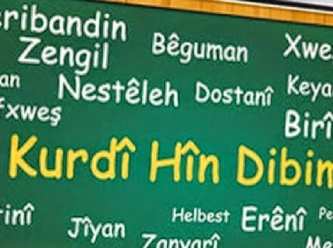 eribandin
Zengil Bêguman Xwe
an Nestêleh Dostanî Keya
fxweş Birî
Kurdî Hîn Dibin
rinî Jîyan Helbest Erênî Pe
Zanyarî Me